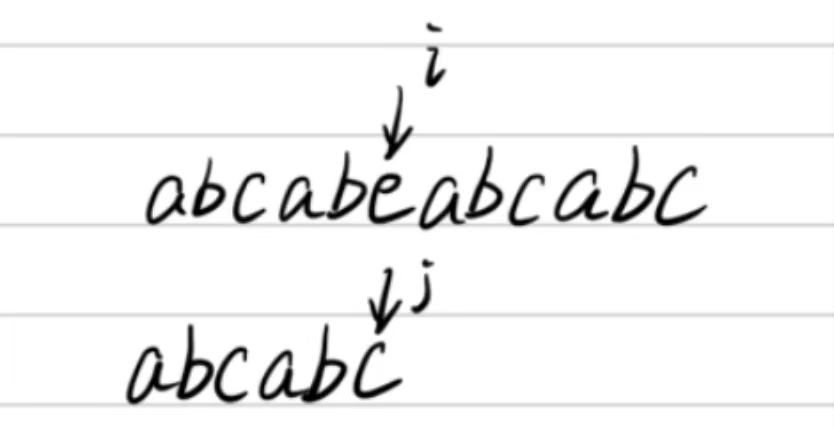 i
abcabeabcabc
j
abcabc